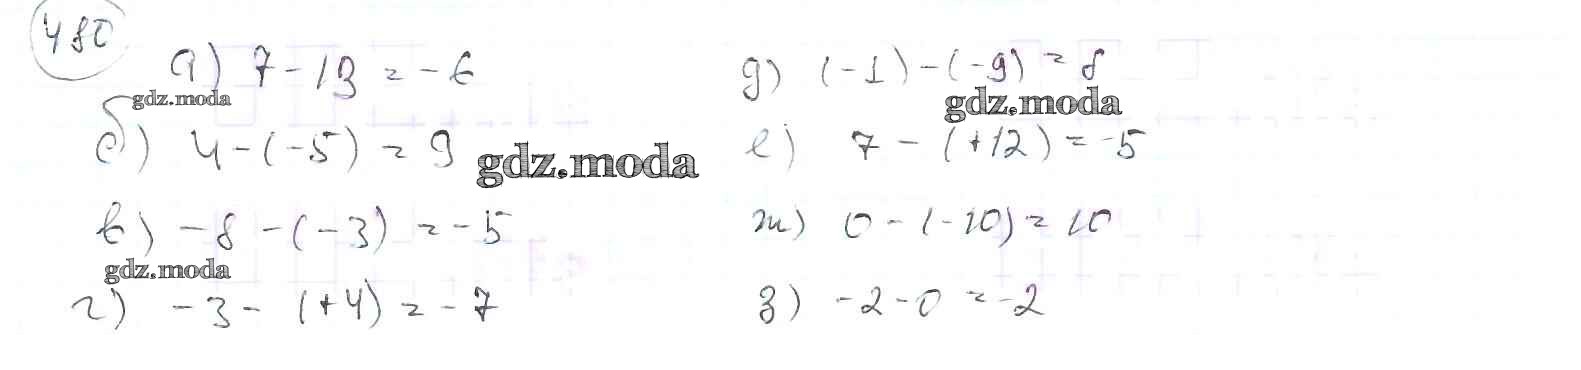 480
а) 7 - 13 = -6
gdz.moda
б) 4 - (-5) = 9
gdz.moda
в) -8 - (-3) = -5
gdz.moda
г) -3 - (+4) = -7
д) (-1) - (-9) = 8
gdz.moda
е) 7 - (+12) = -5
ж) 0 - (-10) = 10
з) -2 - 0 = -2